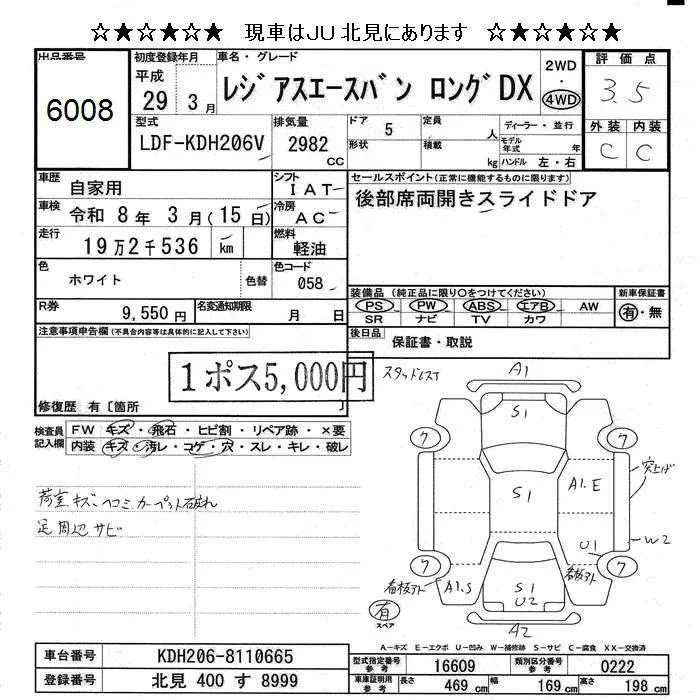 ☆★☆★☆★☆ 現車はJU北見にあります ☆★☆★☆★☆
出品番号 6008
初度登録年月 平成 29 3月
車名・グレード レジアスエースバン ロングDX
2WD・4WD
評価点 3.5
外装 内装
C C
型式 LDF-KDH206V
排気量 2982 cc
ドア 5
形状
定員 人
積載 kg
ディーラー・並行
モデル年式 年
ハンドル 左・右
車歴 自家用
シフト IAT
車検 令和 8年 3月(15日)
冷房 AC
走行 19万2千536 km
燃料 軽油
色 ホワイト 色替
色コード 058
R券 9,550円
名変通知期限 月 日
セールスポイント(正常に機能するものに限ります)
後部席両開きスライドドア
装備品(純正品に限り〇をつけてください)
PS PW ABS エアB AW
SR ナビ TV カワ
新車保証書 有・無
後日品 保証書・取説
注意事項申告欄(不具合内容等は具体的に記入して下さい)
1ポス5,000円
修復歴 有〔箇所 〕
検査員記入欄
FW キズ・飛石・ヒビ割・リペア跡・×要
内装 キズ・汚レ・コゲ・穴・スレ・キレ・破レ
荷室キズ ヘコミ カーペット破れ
足周辺サビ
スタッドレスT
A1
S1
7 7
S1 A1.E 突上げ
U1 W2
7 7
看板アト A1.S S1 U2 看板アト
有 スペア
A2
A-キズ E-エクボ U-凹み W-補修跡 S-サビ C-腐食 XX-交換済
車台番号 KDH206-8110665
登録番号 北見 400 す 8999
型式指定番号 参考 16609
類別区分番号 参考 0222
車庫証明用 参考 長さ 469 cm 幅 169 cm 高さ 198 cm